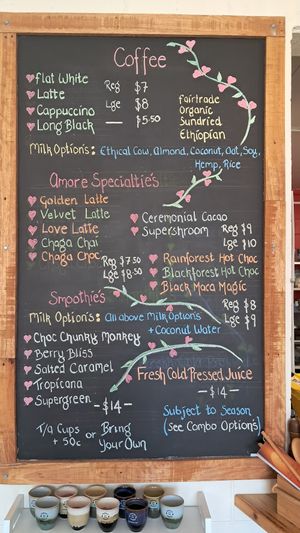 Coffee
Flat White
Latte
Cappuccino
Long Black
Reg $7
Lge $8
— $5.50
Fairtrade
Organic
Sundried
Ethiopian
Milk Option's: Ethical Cow, Almond, Coconut, Oat, Soy,
Hemp, Rice
Amore Specialtie's
Golden Latte
Velvet Latte
Love Latte
Chaga Chai
Chaga Choc
Reg $7.50
Lge $8.50
Ceremonial Cacao
Supershroom
Reg $9
Lge $10
Rainforest Hot Choc
Blackforest Hot Choc
Black Maca Magic
Reg $8
Lge $9
Smoothies
Milk Option's: All above Milk Options
+ Coconut Water
Choc Chunky Monkey
Berry Bliss
Salted Caramel
Tropicana
Supergreen
- $14 -
Fresh Cold Pressed Juice
- $14 -
Subject to Season
(See Combo Option's)
T/a Cups
+ 50c
or Bring
Your Own